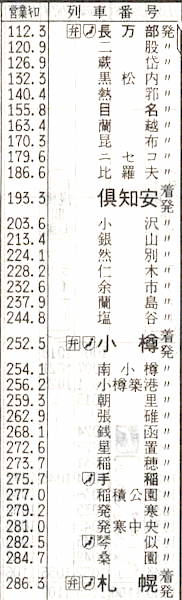 営業キロ 列車番号
112.3 弁 長万部 発
120.9 二股 〃
126.9 蕨岱 〃
132.3 黒松内 〃
140.4 熱郛 〃
155.8 目名 〃
163.4 蘭越 〃
170.3 昆布 〃
179.6 ニセコ 〃
186.6 比羅夫 〃
193.3 倶知安 着発
203.6 小沢 〃
213.4 銀山 〃
224.1 然別 〃
228.2 仁木 〃
232.6 余市 〃
237.9 蘭島 〃
244.8 塩谷 〃
252.5 弁 小樽 着発
254.1 南小樽 〃
256.2 小樽築港 〃
259.3 朝里 〃
262.9 張碓 〃
268.1 銭函 〃
272.6 星置 〃
273.7 稲穂 〃
275.7 手稲 〃
277.0 稲積公園 〃
279.2 発寒 〃
281.0 発寒中央 〃
282.5 琴似 〃
284.7 桑園 〃
286.3 弁 札幌 着発